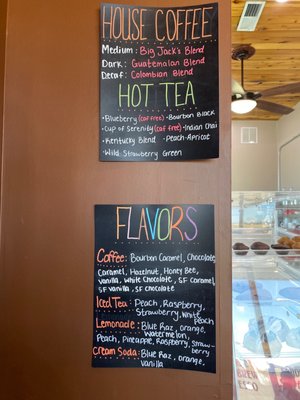 HOUSE COFFEE
Medium: Big Jack's Blend
Dark: Guatemalan Blend
Decaf: Colombian Blend
HOT TEA
•Blueberry (caf free) •Bourbon Black
•Cup of Serenity (caf free) •Indian Chai
•Kentucky Blend •Peach-Apricot
•Wild Strawberry Green
FLAVORS
Coffee: Bourbon Caramel, Chocolate,
Caramel, Hazelnut, Honey Bee,
Vanilla, White Chocolate, SF Caramel,
SF Vanilla, SF Chocolate
Iced Tea: Peach, Raspberry,
Strawberry, White
Peach
Lemonade: Blue Raz, Orange,
Watermelon,
Peach, Pineapple, Raspberry, Straw-
berry
Cream Soda: Blue Raz, Orange,
Vanilla